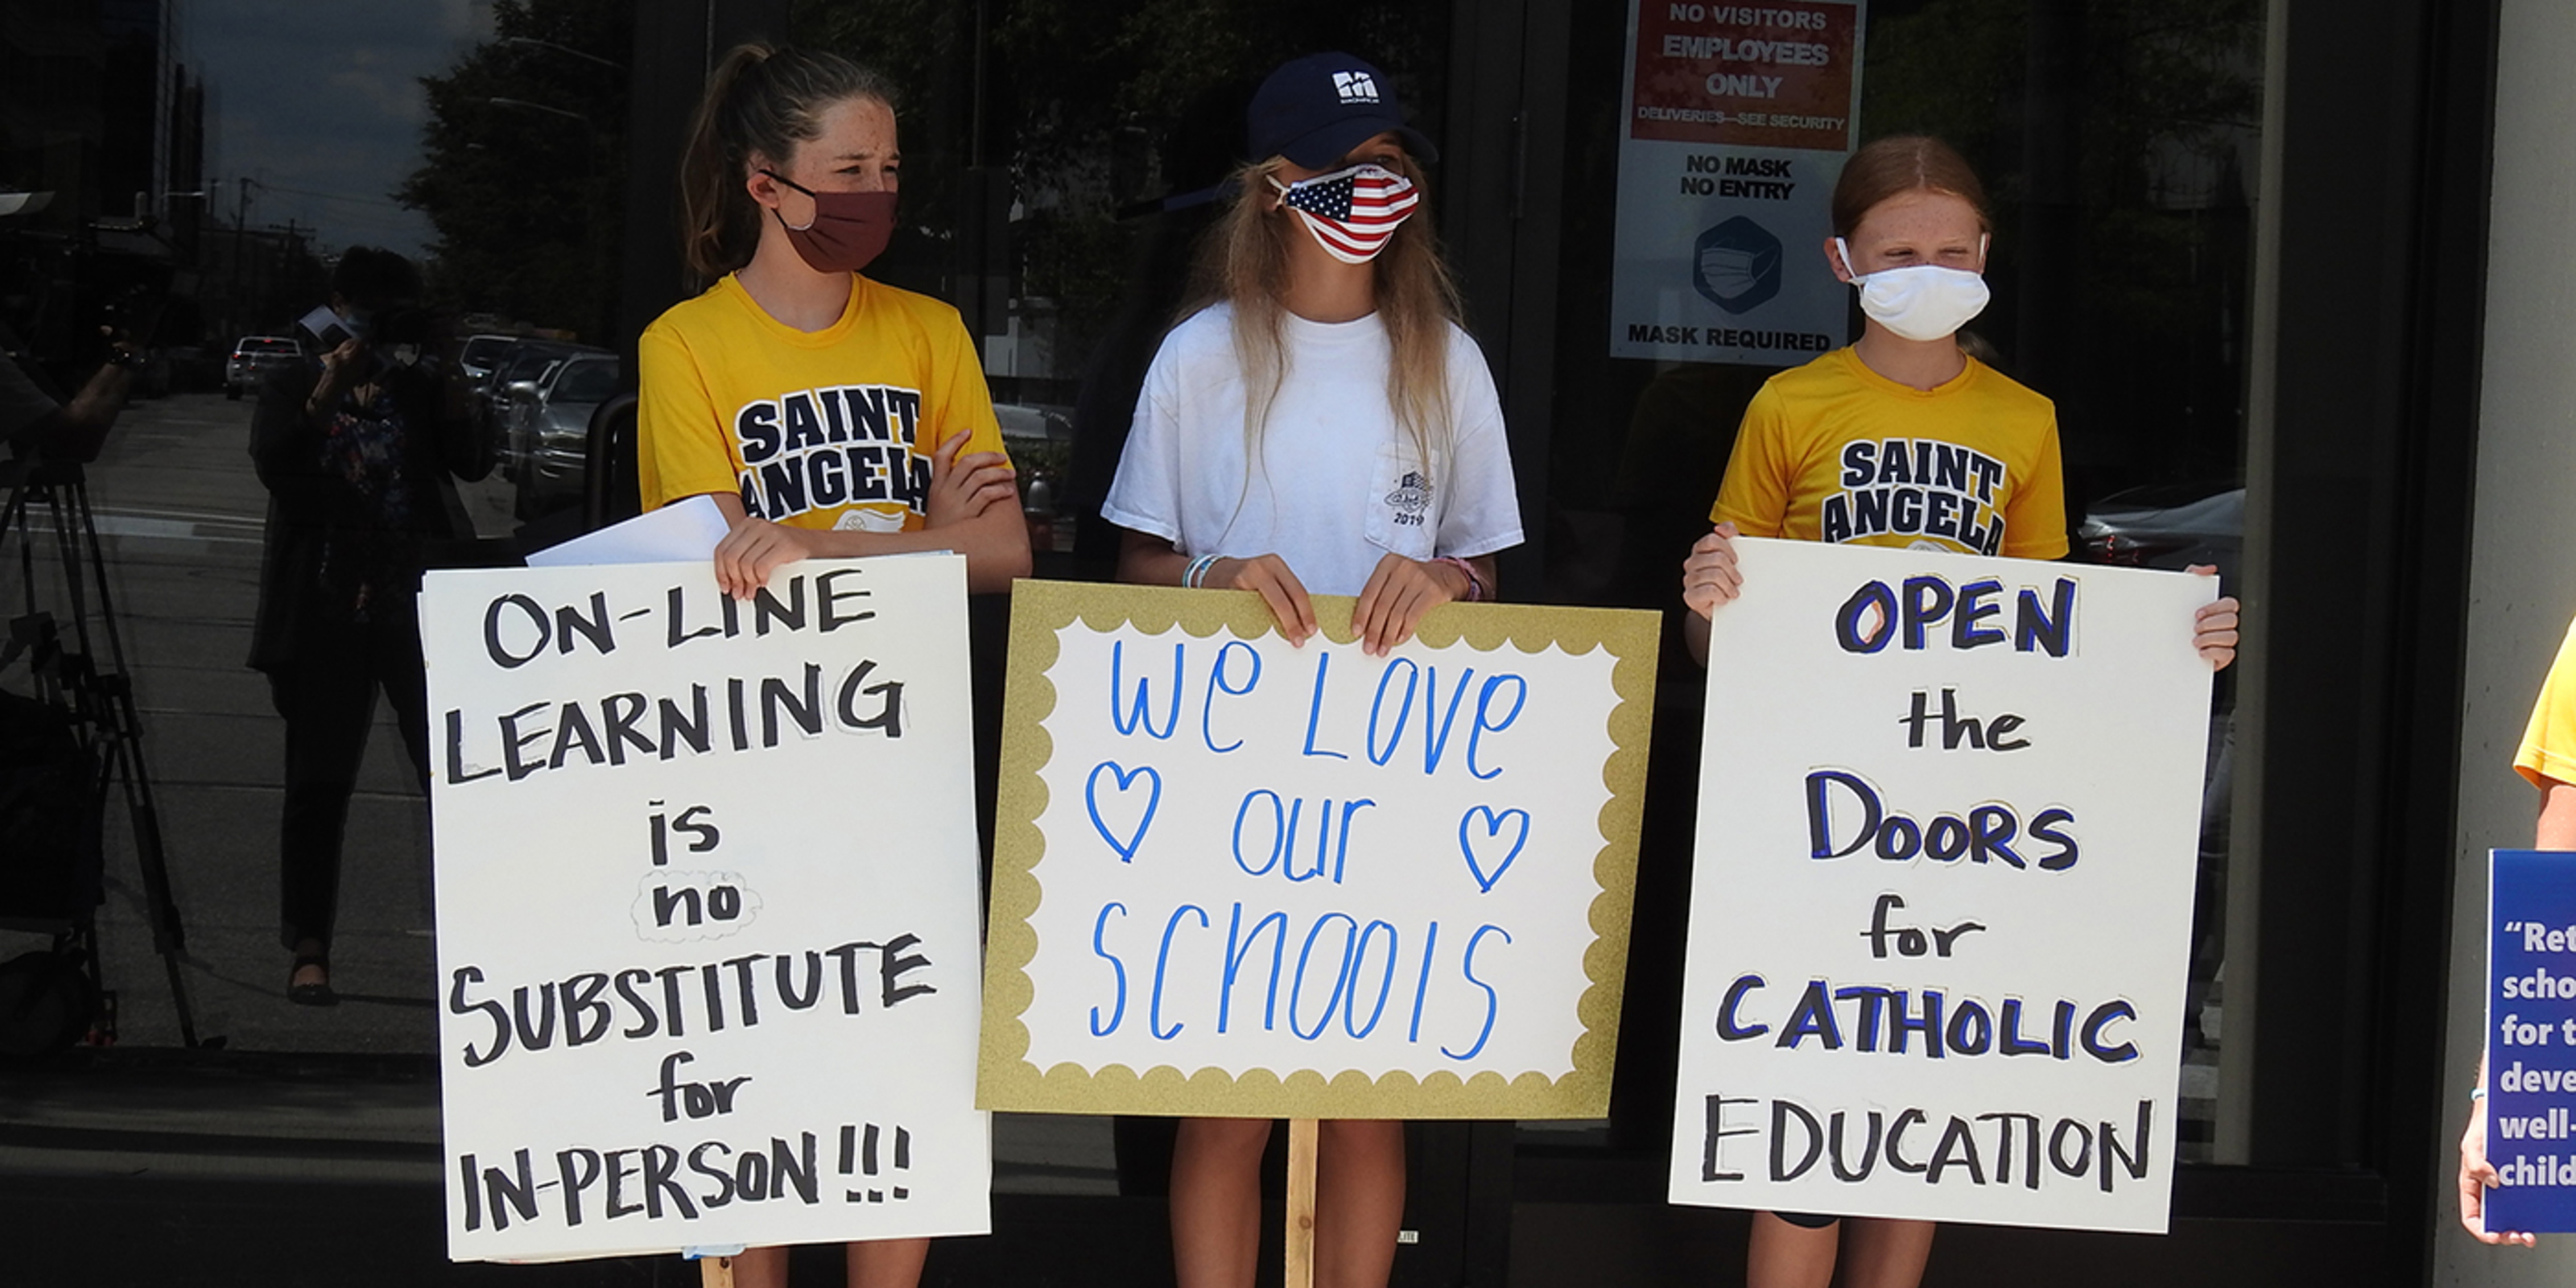 NO VISITORS
EMPLOYEES
ONLY
DELIVERIES—SEE SECURITY
NO MASK
NO ENTRY
MASK REQUIRED
SAINT
ANGELA
2019
SAINT
ANGELA
ON-LINE
LEARNING
is
no
SUBSTITUTE
for
IN-PERSON!!!
We LOVe
our
SCHOOlS
OPEN
the
DOORS
for
CATHOLIC
EDUCATION
"Ret
scho
for t
deve
well-
child